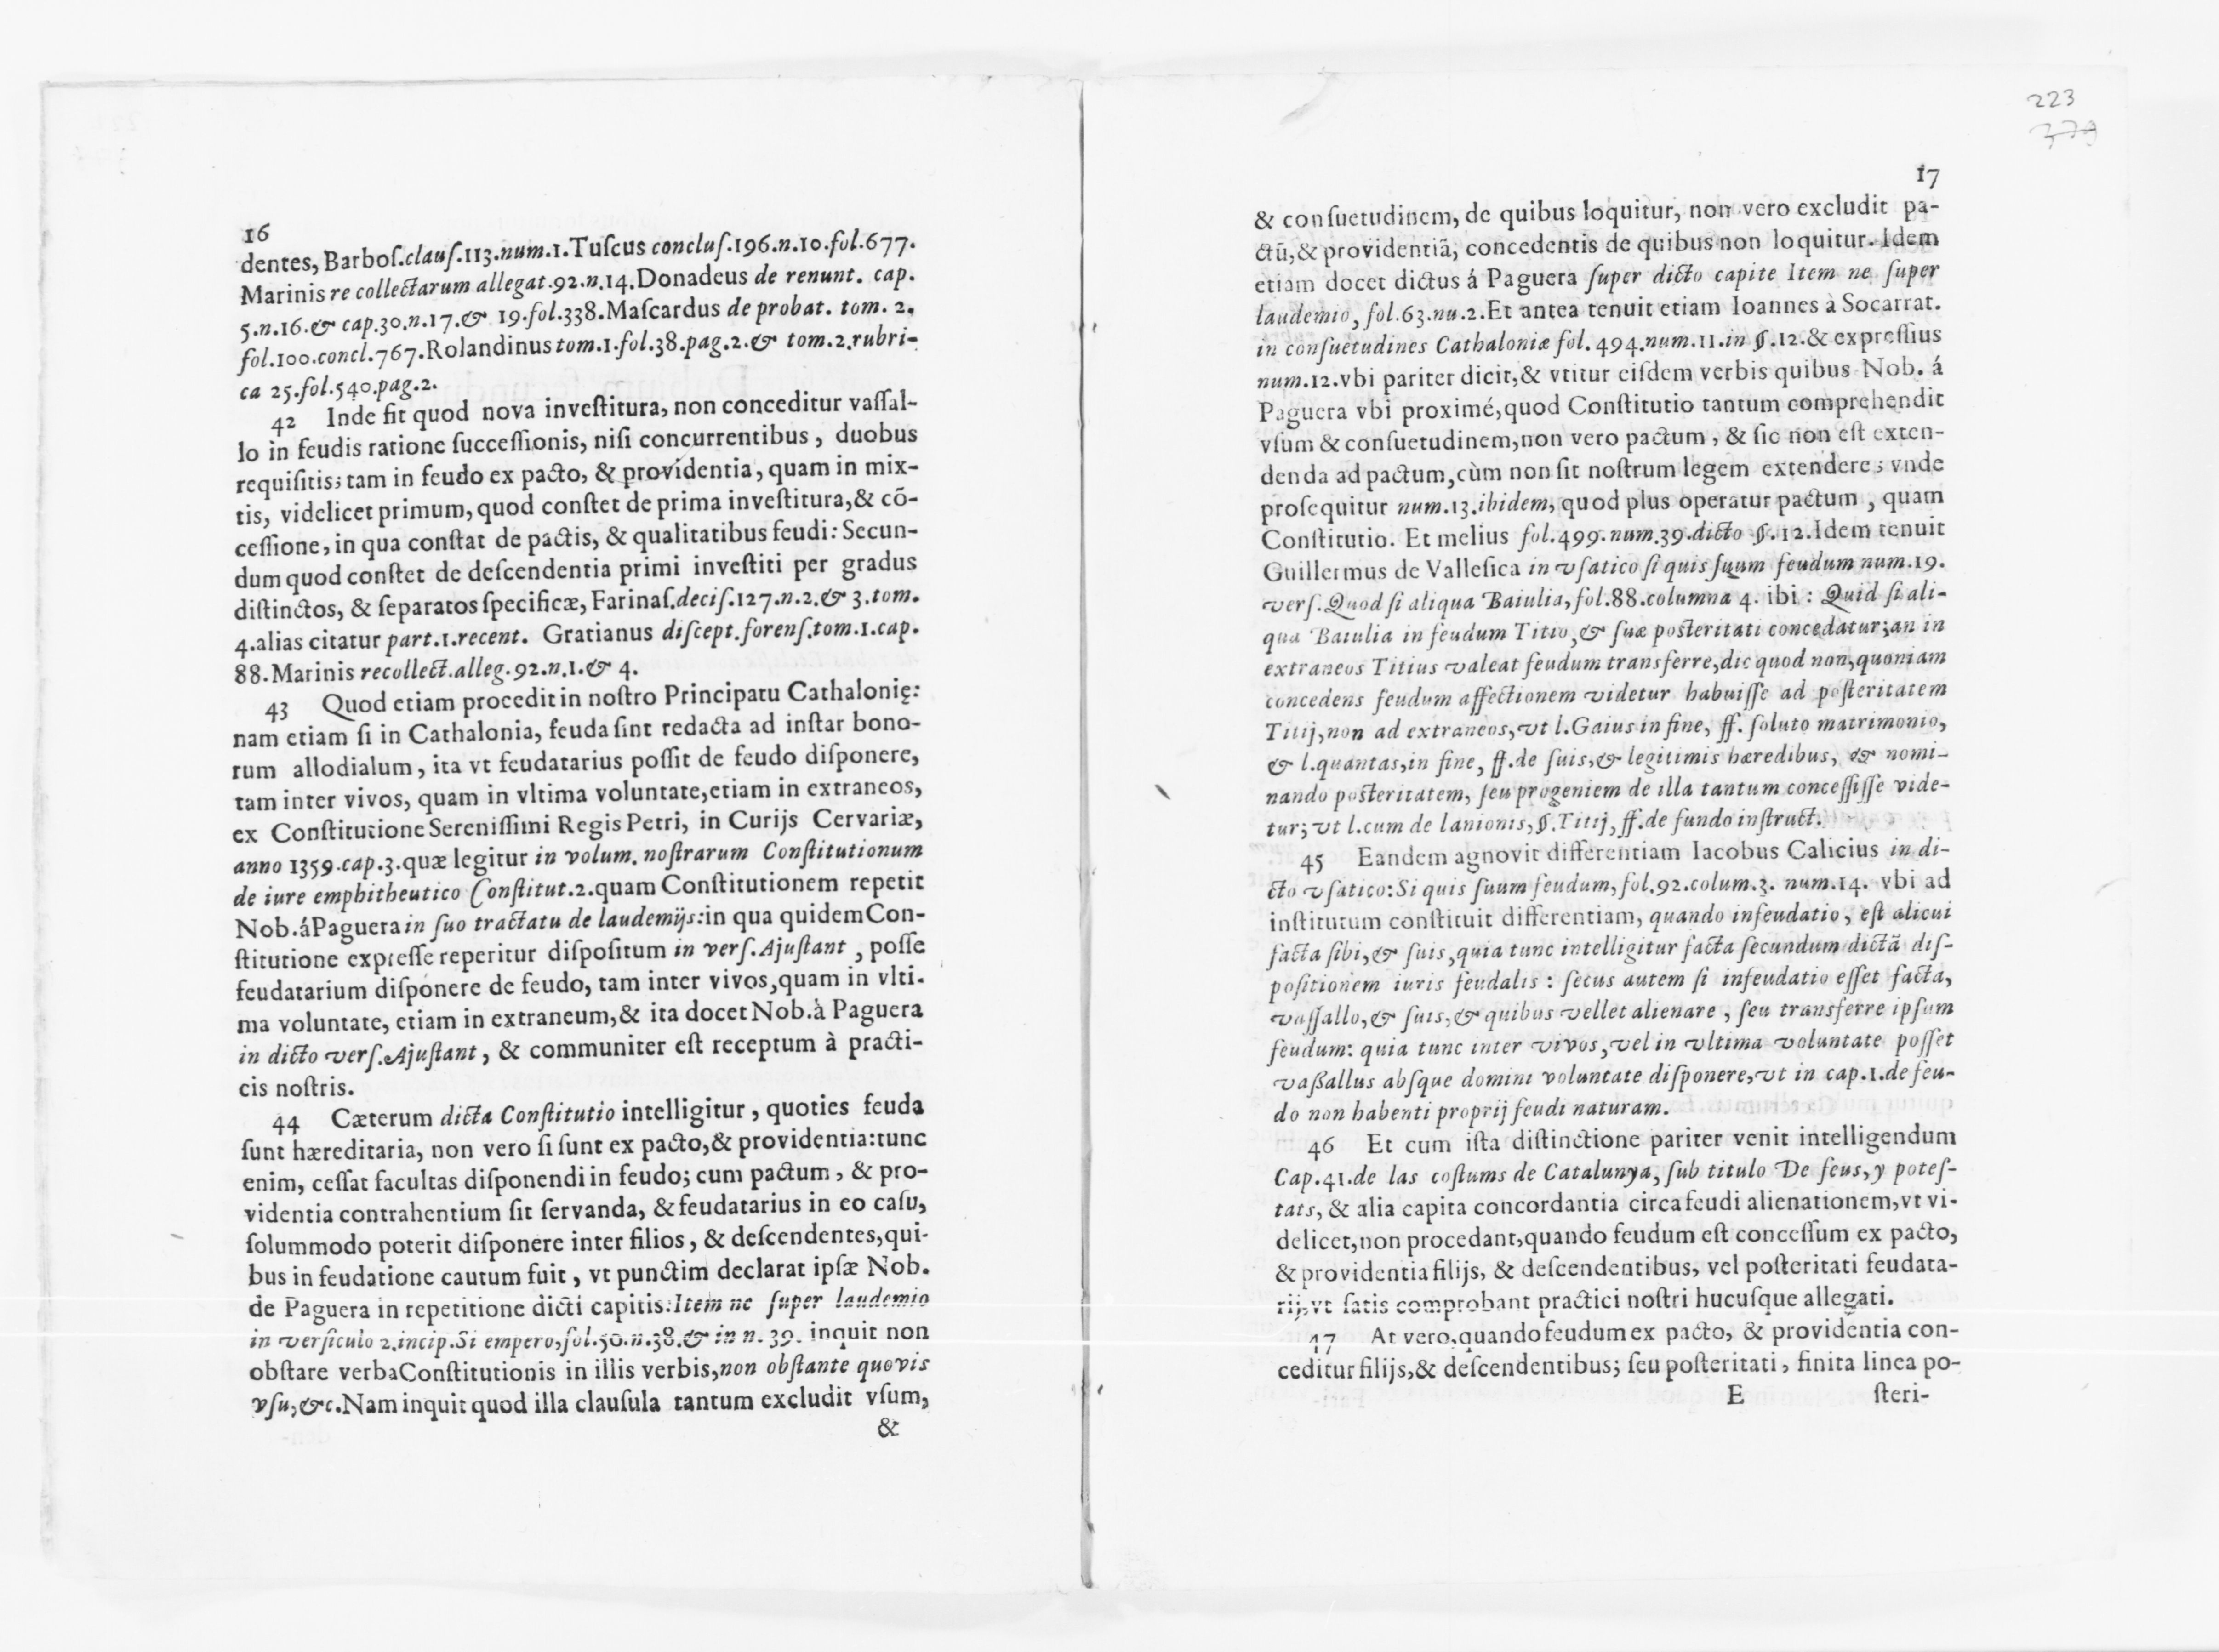 16
dentes, Barboſ.clauſ.113.num.1.Tuſcus concluſ.196.n.10.fol.677.
Marinis re collectarum allegat.92.n.14.Donadeus de renunt. cap.
5.n.16.& cap.30.n.17.& 19.fol.338.Maſcardus de probat. tom. 2.
fol.100.concl.767.Rolandinus tom.1.fol.38.pag.2.& tom.2.rubri-
ca 25.fol.540.pag.2.
42 Inde fit quod nova inveſtitura, non conceditur vaſſal-
lo in feudis ratione ſucceſſionis, niſi concurrentibus, duobus
requiſitis; tam in feudo ex pacto, & providentia, quam in mix-
tis, videlicet primum, quod conſtet de prima inveſtitura,& cõ-
ceſſione, in qua conſtat de pactis, & qualitatibus feudi: Secun-
dum quod conſtet de deſcendentia primi inveſtiti per gradus
diſtinctos, & ſeparatos ſpecificæ, Farinaſ.deciſ.127.n.2.& 3.tom.
4.alias citatur part.1.recent. Gratianus diſcept.forenſ.tom.1.cap.
88.Marinis recollect.alleg.92.n.1.& 4.
43 Quod etiam procedit in noſtro Principatu Cathalonię:
nam etiam ſi in Cathalonia, feuda ſint redacta ad inſtar bono-
rum allodialum, ita vt feudatarius poſſit de feudo diſponere,
tam inter vivos, quam in vltima voluntate,etiam in extraneos,
ex Conſtitutione Sereniſſimi Regis Petri, in Curijs Cervariæ,
anno 1359.cap.3.quæ legitur in volum. noſtrarum Conſtitutionum
de iure emphitheutico Conſtitut.2.quam Conſtitutionem repetit
Nob.áPaguera in ſuo tractatu de laudemijs:in qua quidem Con-
ſtitutione expreſſe reperitur diſpoſitum in verſ.Ajuſtant, poſſe
feudatarium diſponere de feudo, tam inter vivos,quam in vlti-
ma voluntate, etiam in extraneum,& ita docet Nob.à Paguera
in dicto verſ.Ajuſtant, & communiter eſt receptum à practi-
cis noſtris.
44 Cæterum dicta Conſtitutio intelligitur, quoties feuda
ſunt hæreditaria, non vero ſi ſunt ex pacto,& providentia:tunc
enim, ceſſat facultas diſponendi in feudo; cum pactum, & pro-
videntia contrahentium ſit ſervanda, & feudatarius in eo caſu,
ſolummodo poterit diſponere inter filios, & deſcendentes,qui-
bus in feudatione cautum fuit, vt punctim declarat ipſæ Nob.
de Paguera in repetitione dicti capitis:Item ne ſuper laudemio
in verſiculo 2.incip.Si empero,fol.50.n.38.& in n. 39. inquit non
obſtare verbaConſtitutionis in illis verbis,non obſtante quovis
vſu,&c.Nam inquit quod illa clauſula tantum excludit vſum,
&
223
379
17
& conſuetudinem, de quibus loquitur, non vero excludit pa-
ctũ,& providentiã; concedentis de quibus non loquitur. Idem
etiam docet dictus á Paguera ſuper dicto capite Item ne ſuper
laudemio, fol.63.nu.2.Et antea tenuit etiam Ioannes à Socarrat.
in conſuetudines Cathaloniæ fol. 494.num.11.in §.12.& expreſſius
num.12.vbi pariter dicit,& vtitur eiſdem verbis quibus Nob. á
Paguera vbi proximé,quod Conſtitutio tantum comprehendit
vſum & conſuetudinem,non vero pactum, & ſic non eſt exten-
denda ad pactum,cùm non ſit noſtrum legem extendere; vnde
proſequitur num.13.ibidem, quod plus operatur pactum, quam
Conſtitutio. Et melius fol.499.num.39.dicto §.12.Idem tenuit
Guillermus de Valleſica in vſatico ſi quis ſuum feudum num.19.
verſ.Quod ſi aliqua Baiulia, fol.88.columna 4. ibi: Quid ſi ali-
qua Baiulia in feudum Titio,& ſuæ poſteritati concedatur;an in
extraneos Titius valeat feudum transferre,dic quod non,quoniam
concedens feudum affectionem videtur habuiſſe ad poſteritatem
Titij,non ad extraneos,vt l.Gaius in fine, ff. ſoluto matrimonio,
& l.quantas,in fine, ff.de ſuis,& legitimis hæredibus, & nomi-
nando poſteritatem, ſeu progeniem de illa tantum conceſſiſſe vide-
tur; vt l.cum de lanionis,§.Titij, ff.de fundo inſtruct.
45 Eandem agnovit differentiam Iacobus Calicius in di-
cto vſatico:Si quis ſuum feudum, fol.92.colum.3. num.14. vbi ad
inſtitutum conſtituit differentiam, quando infeudatio, eſt alicui
facta ſibi,& ſuis,quia tunc intelligitur facta ſecundum dictã diſ-
poſitionem iuris feudalis: ſecus autem ſi infeudatio eſſet facta,
vaſſallo,& ſuis,& quibus vellet alienare, ſeu transferre ipſum
feudum: quia tunc inter vivos,vel in vltima voluntate poſſet
vaßallus abſque domini voluntate diſponere,vt in cap.1.de feu-
do non habenti proprij feudi naturam.
46 Et cum iſta diſtinctione pariter venit intelligendum
Cap.41.de las coſtums de Catalunya, ſub titulo De feus,y poteſ-
tats, & alia capita concordantia circa feudi alienationem,vt vi-
delicet,non procedant,quando feudum eſt conceſſum ex pacto,
& providentia filijs, & deſcendentibus, vel poſteritati feudata-
rij,vt ſatis comprobant practici noſtri hucuſque allegati.
47 At vero,quando feudum ex pacto, & providentia con-
ceditur filijs,& deſcendentibus; ſeu poſteritati, finita linea po-
E ſteri-